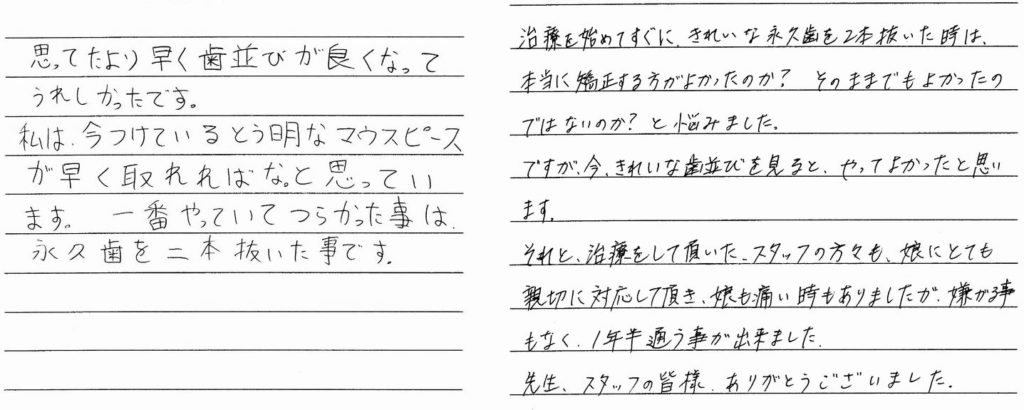 思ってたより早く歯並びが良くなって
うれしかったです。
私は、今つけているとう明なマウスピース
が早く取れればなぁと思ってい
ます。 一番やっていてつらかった事は、
永久歯を二本抜いた事です。
治療を始めてすぐに、きれいな永久歯を2本抜いた時は、
本当に矯正する方がよかったのか? そのままでもよかったの
ではないのか?と悩みました。
ですが、今、きれいな歯並びを見ると、やってよかったと思い
ます。
それと、治療をして頂いた、スタッフの方々も、娘にとても
親切に対応して頂き、娘も痛い時もありましたが、嫌がる事
もなく、1年半通う事が出来ました。
先生、スタッフの皆様、ありがとうございました。